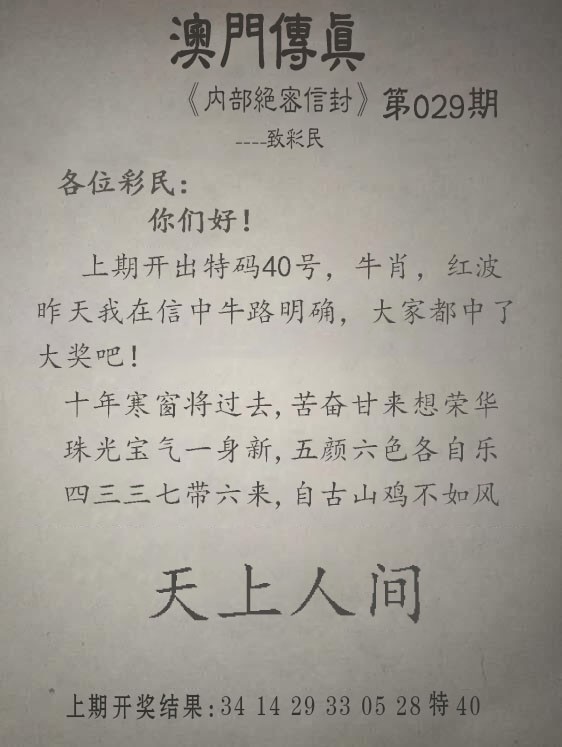 澳門傳眞
《内部絕密信封》第029期
----致彩民
各位彩民:
你们好!
上期开出特码40号，牛肖，红波
昨天我在信中牛路明确，大家都中了
大奖吧!
十年寒窗将过去,苦奋甘来想荣华
珠光宝气一身新,五颜六色各自乐
四三三七带六来,自古山鸡不如风
天上人间
上期开奖结果:34 14 29 33 05 28 特 40